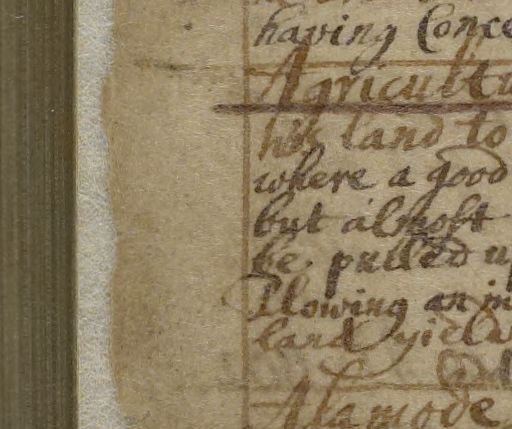 having Conce
Agricultu
his land to
where a good
but almost
be pulled up
Plowing an in
land yield
Alamode